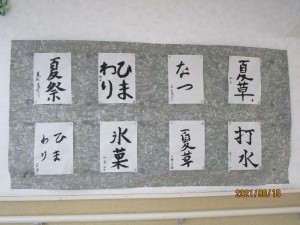 夏草
なつ
ひま
わり
夏祭
打水
夏草
氷菓
ひま
わり
2021/06/16